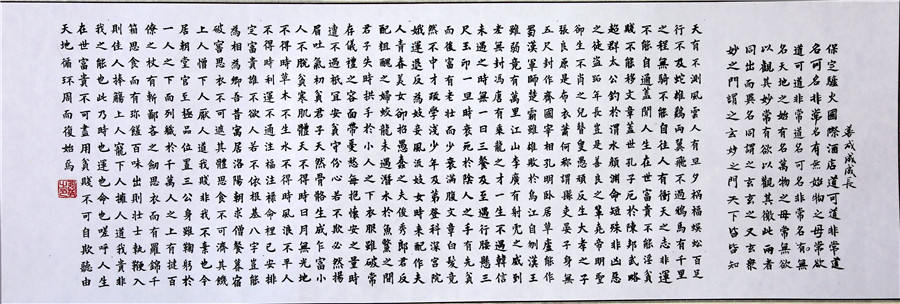 善成成長
保定驢火國際酒店道可道非常道
名可名非常名有無始物之母常欲
道可道非常道名可名非常名有無
名天地之始有名萬物之母常無欲
以觀其妙常有欲以觀其徼此兩者
同出而異名同謂之玄玄之又玄衆
妙之門謂之玄妙之門天下皆皆知
天有不測風雲人有旦夕禍福蜈蚣百足
行不及蛇雄鷄兩翼飛不過鴉馬有千里
之程無騎不能自往人有衝天之志非運
不能自通蓋聞人生在世富貴不能淫貧
賤不能移文章蓋世孔子厄於陳邦武略
超群太公釣於渭水顏淵命短殊非凶惡
之徒盜跖年長豈是善良之輩堯帝明聖
卻生不肖之兒瞽叟愚頑反生大孝
張良原是布衣蕭何稱謂縣吏晏子身無
五尺封作齊國宰相孔明卧居草廬能作
蜀漢軍師楚霸雖雄敗於烏江自刎漢王
雖弱竟有萬里江山李廣有射虎之威到
老無封馮唐有乘龍之才一生不遇韓信
未遇之時無一日三餐及至遇行腰懸三
尺玉印一旦時衰死於陰人之手有先貧
而後富有老壯而少衰滿腹文章白髮竟
然不中才疏學淺少年及第登科深宮院
娥運退反為妓妾風流妓女時來配作夫
人青春美女卻招愚蠢之夫俊秀郎君反
配粗醜之婦蛟龍未遇潛水於魚鱉之間
君子失時拱手於小人之下衣服雖破常
存儀禮之容面帶憂愁每抱懷安之量時
遭不遇祇宜安貧守份心若不欺必然揚
眉吐氣初貧君子天然骨骼生成乍富小
人不脫貧寒肌體天不得時日月無光地
不得時草木不生水不得時風浪不平人
不得時利運不通注福注祿命裡已安排
定富貴誰不欲人若不依根基八字豈能
為相為卿吾昔寓居洛陽朝求僧餐暮宿
破窑思衣不可遮其體思食不可濟其饑
上人憎下人厭人道我賤非我不棄也今
居朝堂官至極品位置三公身雖鞠躬於
一人之下而列職於千萬人之上有撻百
僚之杖有斬鄙吝之劍思衣而有羅錦千
箱思食而有珍饈百味出則壯士執鞭入
則佳人捧觴上人寵下人擁人道我貴非
我之能也此乃時也運也命也嗟呼人生
在世富貴不可盡用貧賤不可自欺聽由
天地循環周而復始焉